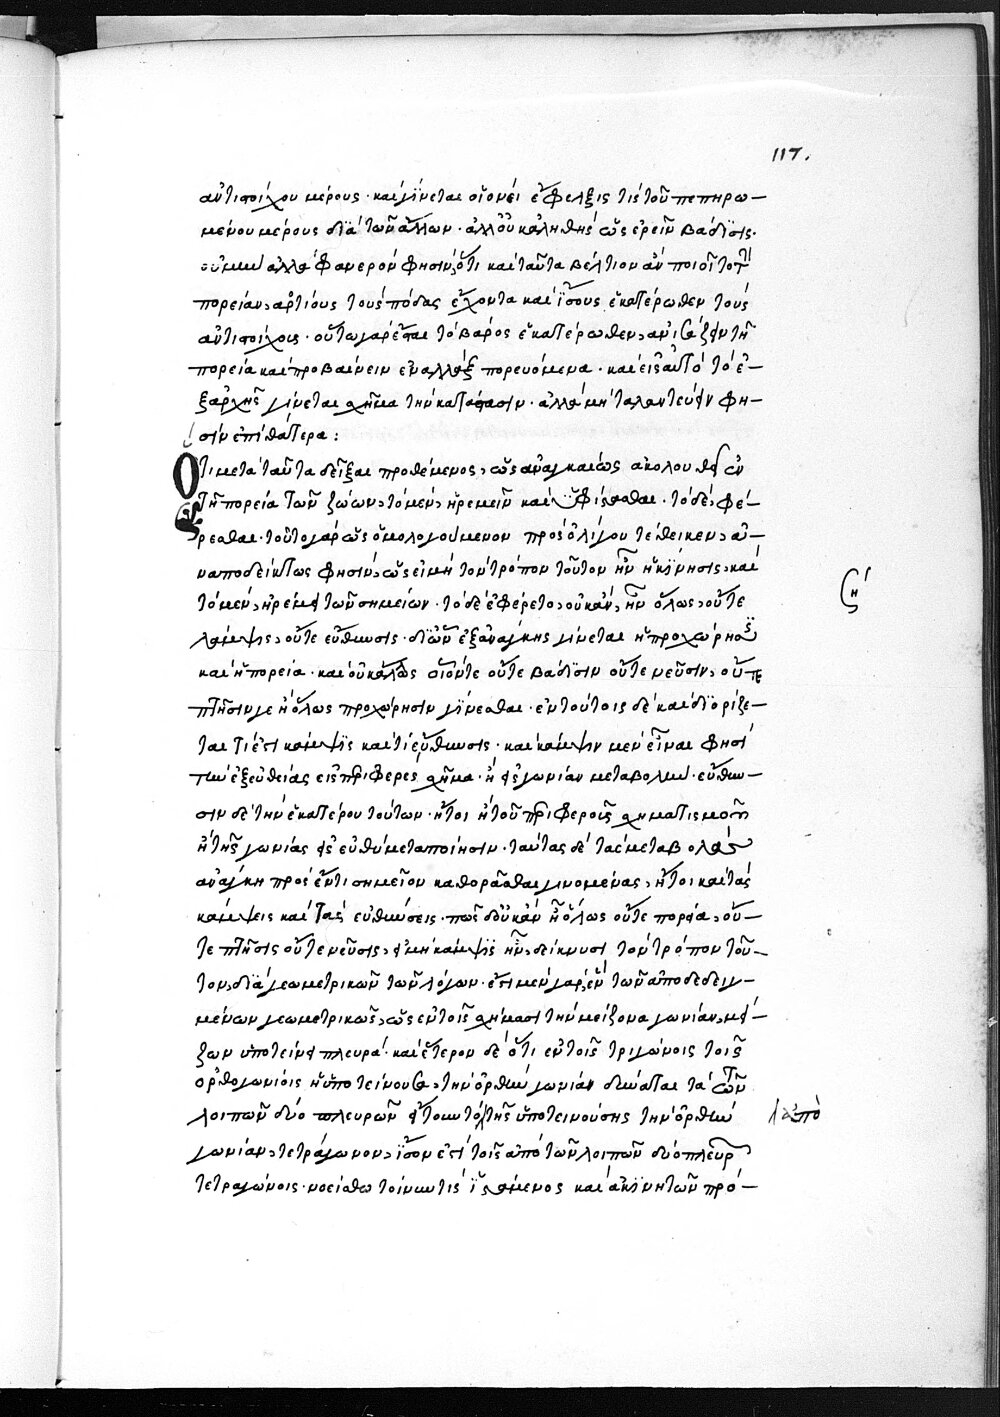 117.
ἀντιστοίχου μέρους · καὶ γίνεται οἱονεὶ ἐφελξίς τις τοῦ πεπηρω-
μένου μέρους διὰ τῶν ἄλλων · ἀλλ' οὐκ ἀληθὴς ὡς ἐρεῖν βάδισις.
οὐ μὴν ἀλλὰ φανερὸν φησὶν, ὅτι καὶ ταῦτα βέλτιον ἂν ποιοῖτο τὴν
πορείαν, ἀρτίους τοὺς πόδας ἔχοντα καὶ ἴσους ἑκατέρωθεν τοὺς
ἀντιστοίχοις · οὕτω γὰρ ἔσται τὸ βάρος ἑκατέρωθεν, ἀνισάζειν τῇ
πορεία καὶ προβαίνειν ἐναλλὰξ πορευόμενα · καὶ εἰς αὐτὸ τὸ ἐ-
ξαρχῆς γίνεται σχῆμα τὴν κατάστασιν · ἀλλὰ μὴ ταλαντεύειν φη-
σὶν ἐπὶ θάτερα :
Ὅτι μετὰ ταῦτα δεῖξαι προθέμενος, ὡς ἀναγκαίως ἀκολουθεῖ ἐν
τῇ πορεία τῶν ζώων, τὸ μὲν, ἠρεμεῖν καὶ ὑφίστασθαι · τὸ δὲ, φέ-
ρεσθαι · τοῦτο γὰρ ὡς ὁμολογούμενον πρὸ ὀλίγου τέθεικεν, ἀ-
ναποδείκτως φησὶν, ὡς εἰ μὴ τὸν τρόπον τοῦτον ἦν ἡ κίνησις, καὶ
τὸ μὲν, ἠρέμει τῶν σημείων · τὸ δὲ ἐφέρετο, οὐκ ἂν, ἦν ὅλως, οὔτε
κάμψις, οὔτε εὔθυνσις · δι' ὧν ἐξ ἀνάγκης γίνεται ἡ προχώρησις
καὶ ἡ πορεία · καὶ οὐκ ἄλλως οἷόν τε οὔτε βάδισιν οὔτε νεῦσιν, οὔτε
πτῆσιν γε ἢ ὅλως προχώρησιν γίνεσθαι · ἐν τούτοις δὲ καὶ διορίζε-
ται τί ἐστι κάμψις καὶ τί εὔθυνσις · καὶ κάμψιν μὲν εἶναι φησὶ
τὴν ἐξ εὐθείας εἰς περιφερὲς σχῆμα · ἢ εἰς γωνίαν μεταβολὴν · εὔθυν-
σιν δὲ τὴν ἑκατέρου τούτων · ἤτοι ἢ τοῦ περιφεροῦς σχηματισμοῦ
ἢ τῆς γωνίας εἰς εὐθὺ μεταποίησιν · ταύτας δὲ τὰς μεταβολὰς
ἀνάγκη πρὸς ἕν τι σημεῖον καθορᾶσθαι γινομένας, ἤτοι καὶ τὰς
κάμψεις καὶ τὰς εὐθύνσεις · πῶς δ' οὐκ ἂν ἦ ὅλως οὔτε πορεία, οὔ-
τε πτῆσις οὔτε νεῦσις, εἰ μὴ κάμψις ἦν, δείκνυσι τὸν τρόπον τοῦ-
τον, διὰ γεωμετρικῶν τῶν λόγων · ἔστι μὲν γὰρ, ἓν τῶν ἀποδεδειγ-
μένων γεωμετρικῶς, ὡς ἐν τοῖς σχήμασι τὴν μείζονα γωνίαν, μεί-
ζων ὑποτείνει πλευρὰ · καὶ ἕτερον δὲ ὅτι ἐν τοῖς τριγώνοις τοῖς
ὀρθογωνίοις ἡ ὑποτείνουσα τὴν ὀρθὴν γωνίαν δύναται τὰ τῶν
λοιπῶν δύο πλευρῶν ἤτουν τὸ τῆς ὑποτεινούσης τὴν ὀρθὴν
ἀπὸ
γωνίαν, τετράγωνον, ἴσον ἐστὶ τοῖς ἀπὸ τῶν λοιπῶν δύο πλευρῶν
τετραγώνοις · νοείσθω τοίνυν τις ἱστάμενος καὶ ἀκίνητων πρό-